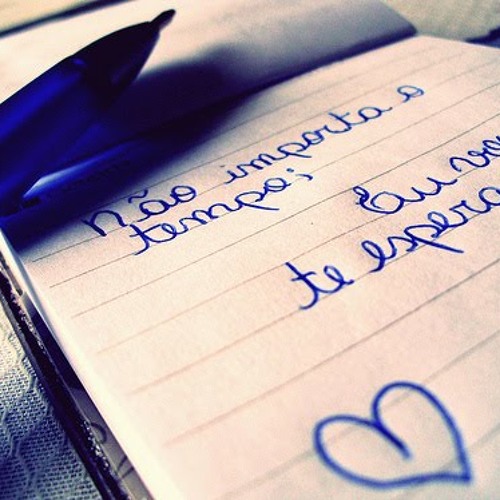 não importa o
tempo;
Eu vo
te espera